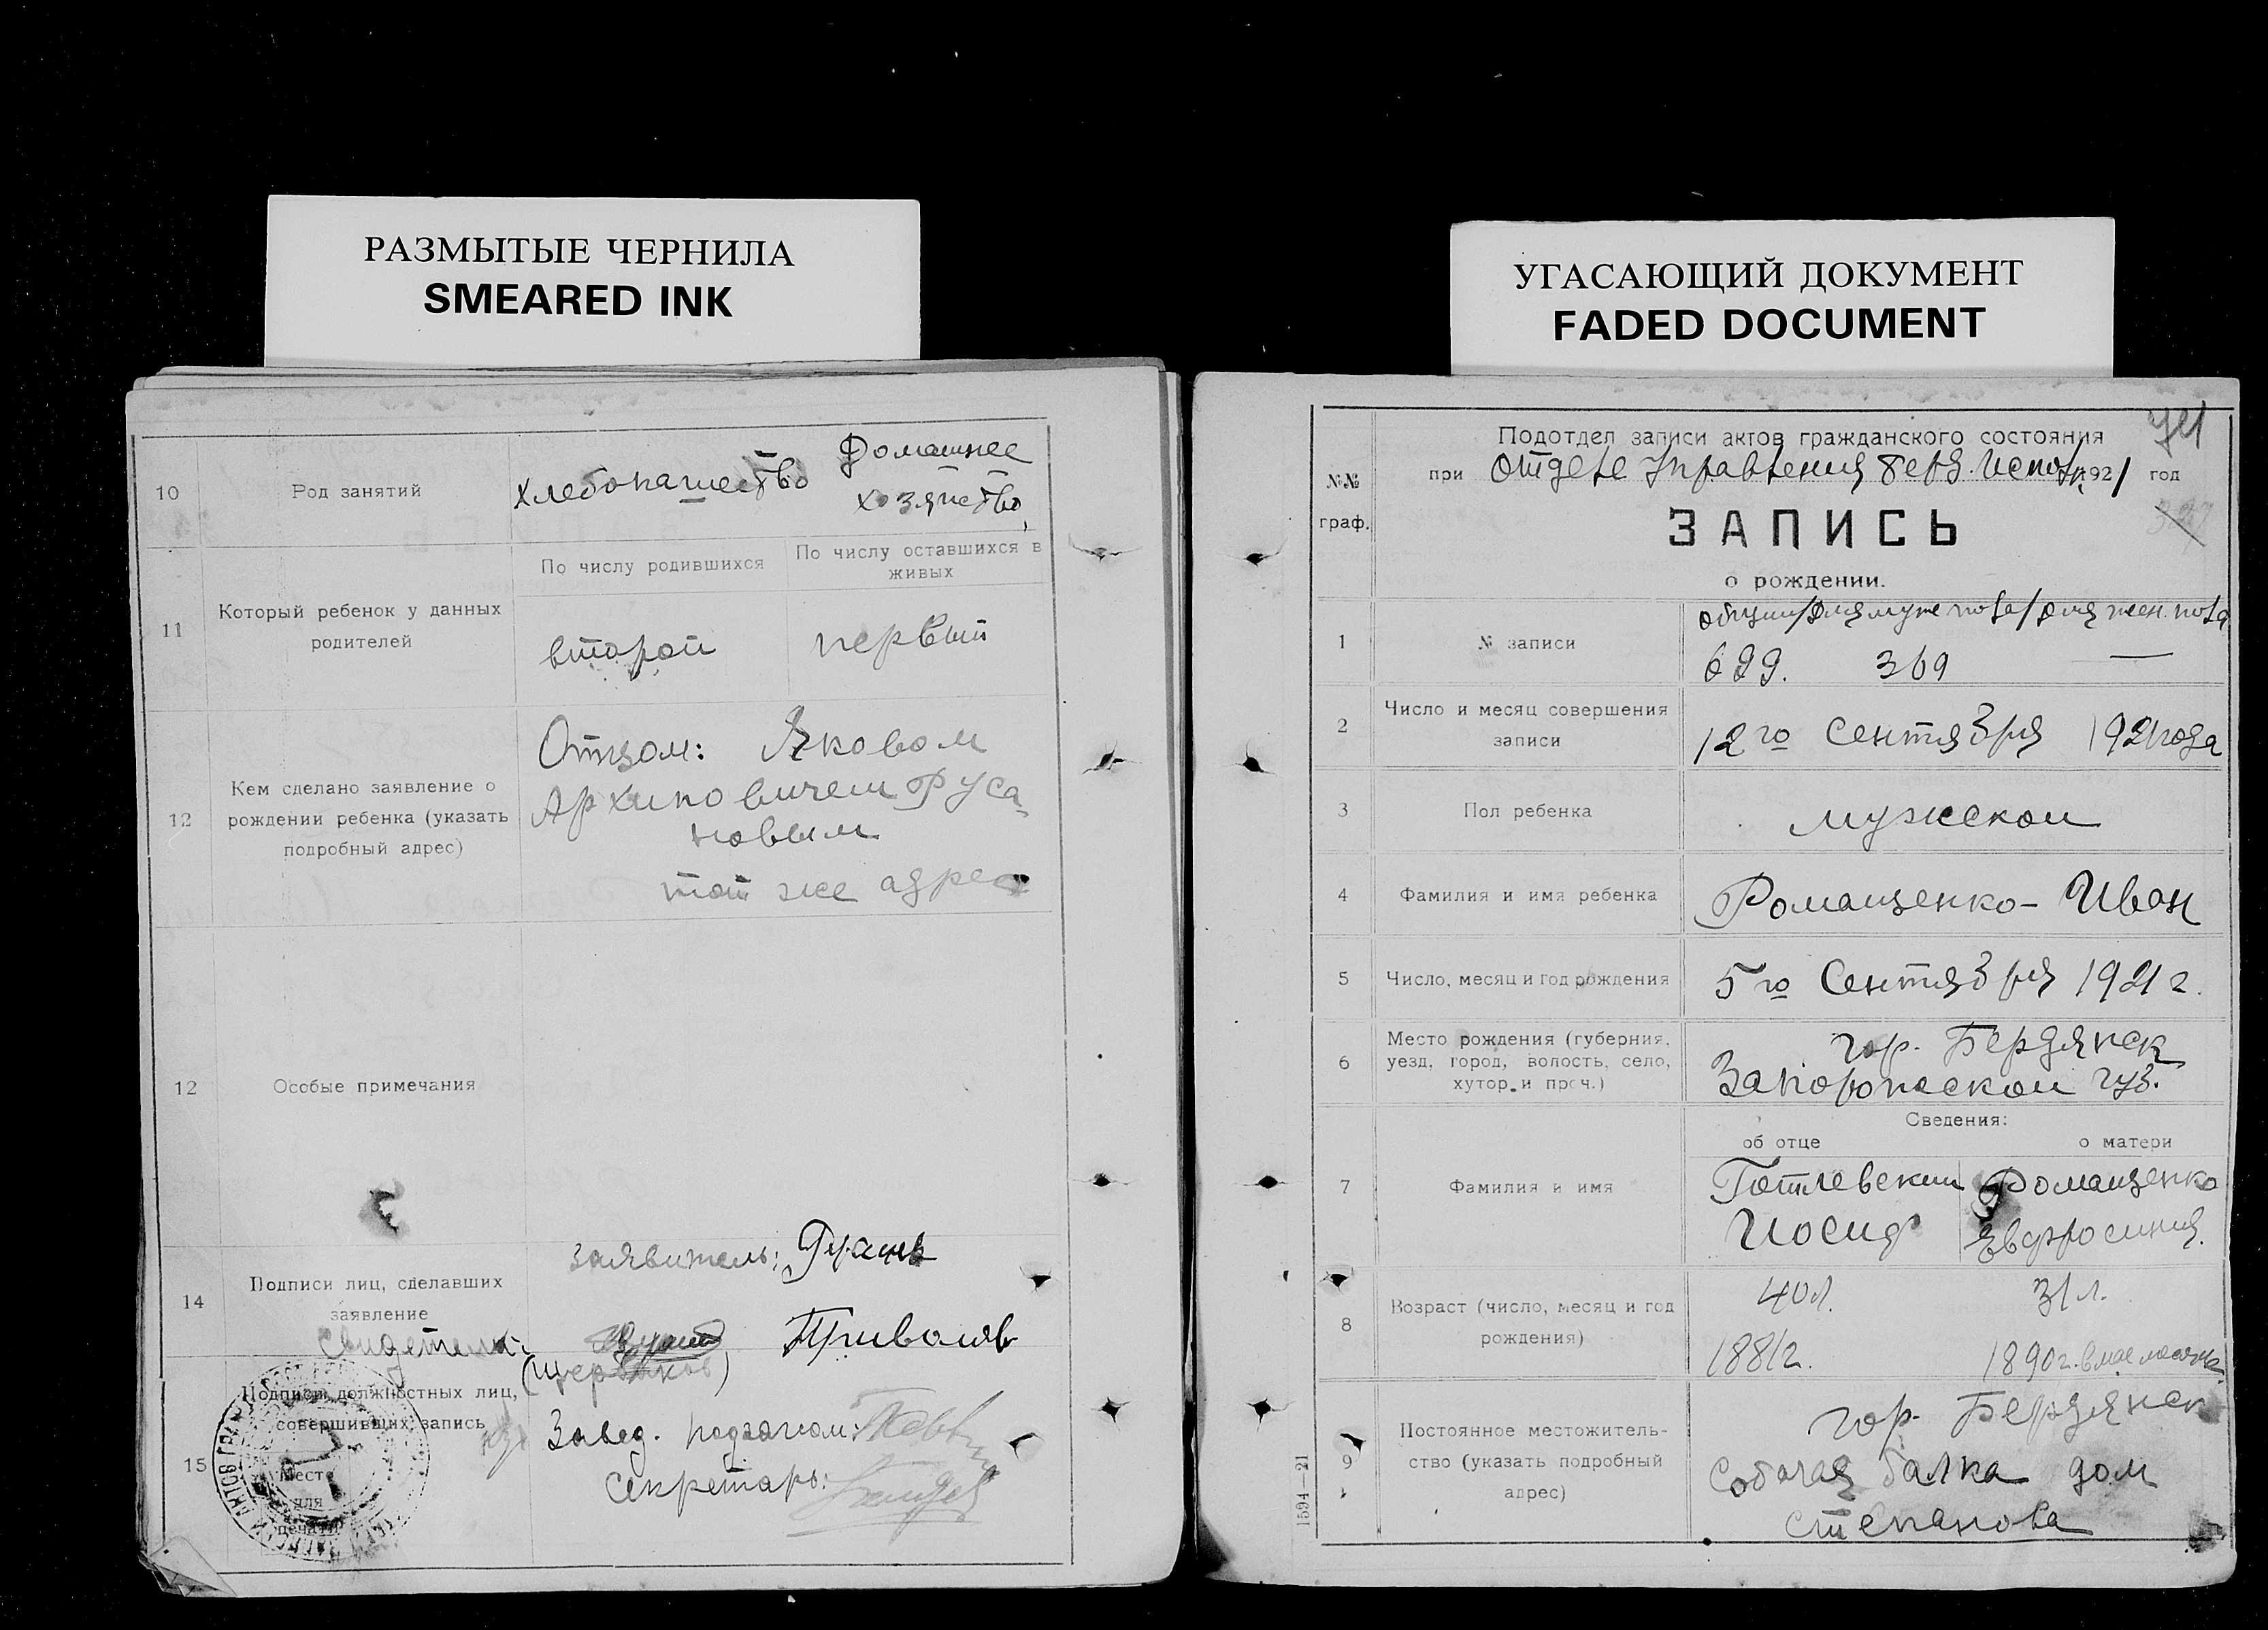 РАЗМЫТЫЕ ЧЕРНИЛА
SMEARED INK
10
Род занятий
хлебопашество
Домашнее
хозяйство,
11
Который ребенок у данных
родителей
По числу родившихся
По числу оставшихся в
живых
второй
первый
12
Кем сделано заявление о
рождении ребенка (указать
подробный адрес)
Отцом: Яковом
Архиповичем Руса-
новым
тот же адрес
12
Особые примечания
14
Подписи лиц, сделавших
заявление
заявитель:
Свидетели:
15
Подписи должностных лиц,
совершивших запись
Место
для
печати
Завед. подотделом:
Секретарь:
УГАСАЮЩИЙ ДОКУМЕНТ
FADED DOCUMENT
№№
граф.
Подотдел записи актов гражданского состояния
при Отделе Управления Берд. Исполк. 1921 год
ЗАПИСЬ
о рождении.
1
№ записи
общий/для муж. пола/для жен. пола
699. 369 —
2
Число и месяц совершения
записи
12го Сентября 1921 года
3
Пол ребенка
мужской
4
Фамилия и имя ребенка
Романценко- Иван
5
Число, месяц и год рождения
5го Сентября 1921 г.
6
Место рождения (губерния,
уезд, город, волость, село,
хутор и проч.)
гор. Бердянск
Запорожской губ.
Сведения:
об отце
о матери
7
Фамилия и имя
Готлевский
Иосиф
Романценко
Евфросиния.
8
Возраст (число, месяц и год
рождения)
40 л.
1881 г.
31 л.
1890 г. в мае месяце
9
Постоянное местожитель-
ство (указать подробный
адрес)
гор. Бердянск
Собачая балка дом
Степанова
1594—21